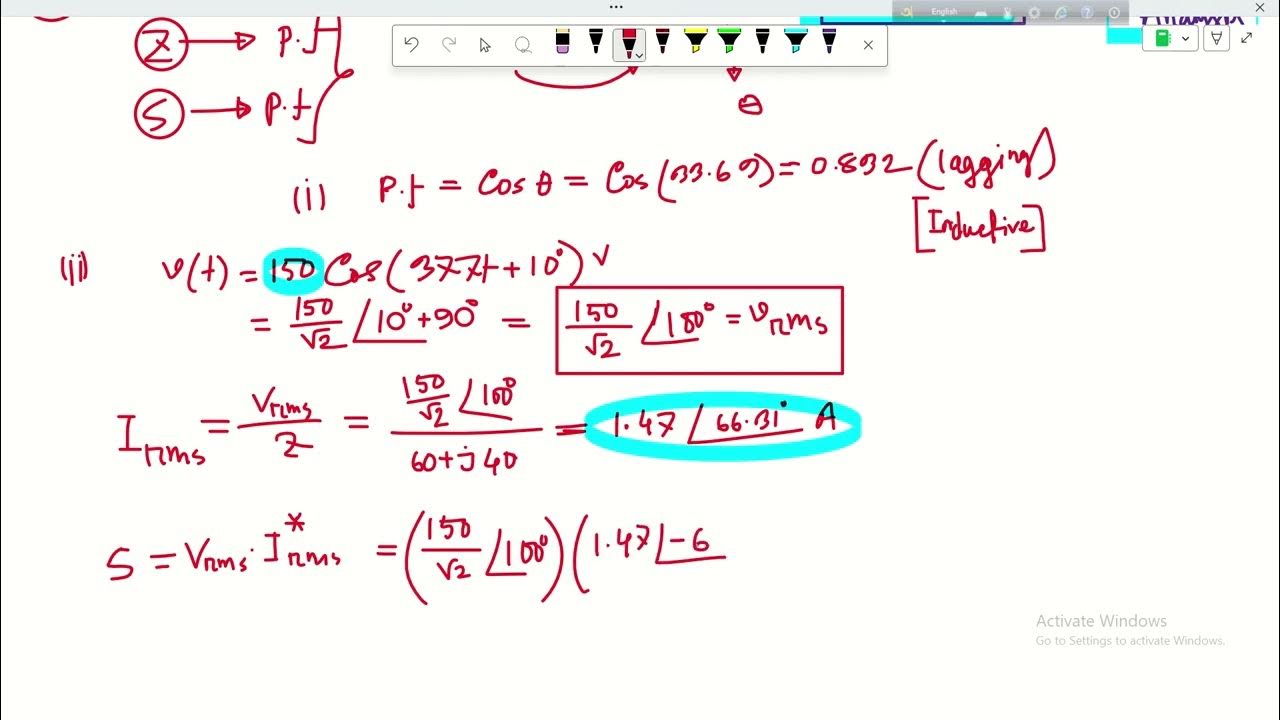 English
Z → P.f
S → P.f
θ
(i) P.f = Cos θ = Cos(33.69) = 0.832 (lagging)
[Inductive]
(ii) v(t) = 150 Cos(377t + 10°) V
= 150/√2 ∠10°+90° = 150/√2 ∠100° = Vrms
Irms = Vrms/Z = (150/√2 ∠100°)/(60+j40) = 1.47 ∠66.31° A
S = Vrms · I*rms = (150/√2 ∠100°)(1.47 ∠-6
Activate Windows
Go to Settings to activate Windows.